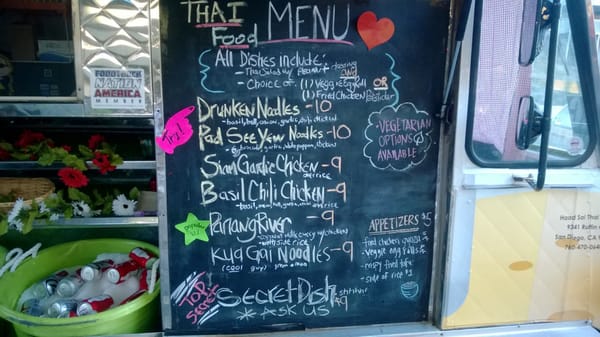 THAI Food MENU
All Dishes Include:
- Thai Salad w/ Peanut dressing
AND
- Choice of (1) Vegg. Egg Roll OR
(1) Fried Chicken Potsticker
Drunken Noodles - 10
Try!
Pad See Yew Noodles - 10
VEGETARIAN
OPTIONS
AVAILABLE
Siam Garlic Chicken - 9
Basil Chili Chicken - 9
Panang River - 9
with side rice
Kua Gai Noodles - 9
(cool guy)
APPETIZERS $5
- fried chicken
- veggie egg rolls
- crispy fried tofu
- side of rice
TOP
SECRET
Secret Dish
$9
* ASK US
FOOD TRUCK
NATION
AMERICA
MEMBER
Haad Sai Thai
9341 Ruffin
San Diego, CA
760-470-0